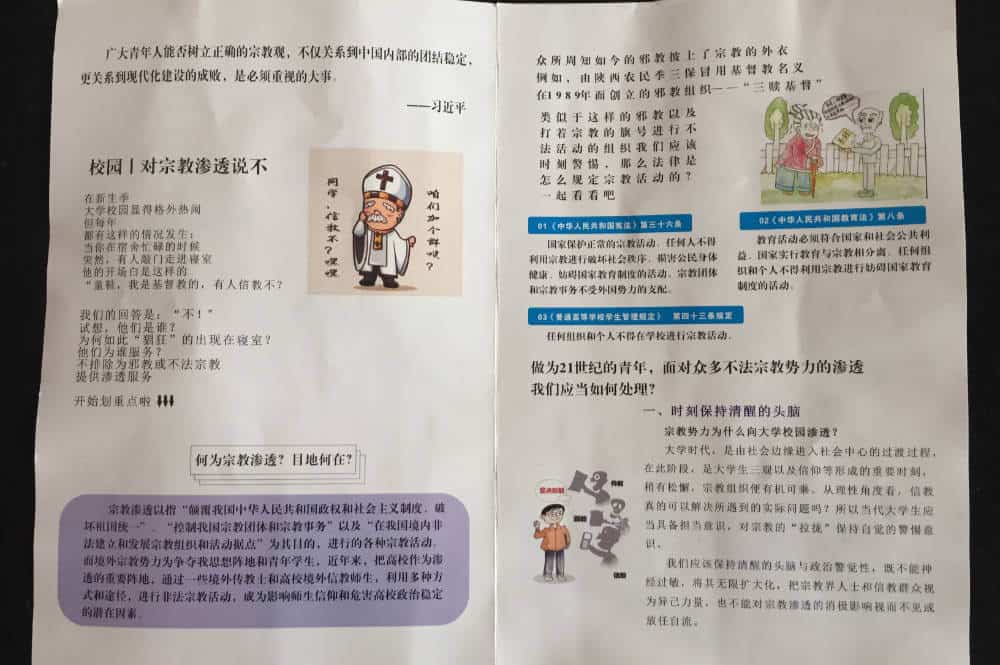 广大青年人能否树立正确的宗教观，不仅关系到中国内部的团结稳定，
更关系到现代化建设的成败，是必须重视的大事。
——习近平
校园|对宗教渗透说不
在新生季
大学校园显得格外热闹
但每年
都有这样的情况发生：
当你在宿舍忙碌的时候
突然，有人敲门走进寝室
他的开场白是这样的
“童鞋，我是基督教的，有人信教不？
同学、信教不？嘿嘿
咱们加个群呗？
我们的回答是：“不！”
试想，他们是谁？
为何如此“猖狂”的出现在寝室？
他们为谁服务？
不排除为邪教或不法宗教
提供渗透服务
开始划重点啦
何为宗教渗透？目地何在？
宗教渗透以指“颠覆我国中华人民共和国政权和社会主义制度、破
坏祖国统一”、“控制我国宗教团体和宗教事务”以及“在我国境内非
法建立和发展宗教组织和活动据点”为其目的，进行的各种宗教活动。
而境外宗教势力为争夺我思想阵地和青年学生，近年来，把高校作为渗
透的重要阵地，通过一些境外传教士和高校境外信教师生，利用多种方
式和途径，进行非法宗教活动，成为影响师生信仰和危害高校政治稳定
的潜在因素。
众所周知如今的邪教披上了宗教的外衣
例如，由陕西农民季三保冒用基督教名义
在1989年而创立的邪教组织——“三赎基督”
类似于这样的邪教以及
打着宗教的旗号进行不
法活动的组织我们应该
时刻警惕，那么法律是
怎么规定宗教活动的？
一起看看吧
01《中华人民共和国宪法》第三十六条
国家保护正常的宗教活动。任何人不得
利用宗教进行破坏社会秩序、损害公民身体
健康、妨碍国家教育制度的活动。宗教团体
和宗教事务不受外国势力的支配。
02《中华人民共和国教育法》第八条
教育活动必须符合国家和社会公共利
益。国家实行教育与宗教相分离。任何组
织和个人不得利用宗教进行妨碍国家教育
制度的活动。
03《普通高等学校学生管理规定》 第四十三条规定
任何组织和个人不得在学校进行宗教活动。
做为21世纪的青年，面对众多不法宗教势力的渗透
我们应当如何处理？
一、时刻保持清醒的头脑
宗教势力为什么向大学校园渗透？
大学时代，是由社会边缘进入社会中心的过渡过程，
在此阶段，是大学生三观以及信仰等形成的重要时刻，
稍有松懈，宗教组织便有机可乘。从理性角度看，信教
真的可以解决所遇到的实际问题吗？所以当代大学生应
当具备担当意识，对宗教的“拉拢”保持自觉的警惕意
识。
我们应该保持清醒的头脑与政治警觉性，既不能神
经过敏，将其无限扩大化，把宗教界人士和信教群众视
为异己力量，也不能对宗教渗透的消极影响视而不见或
放任自流。